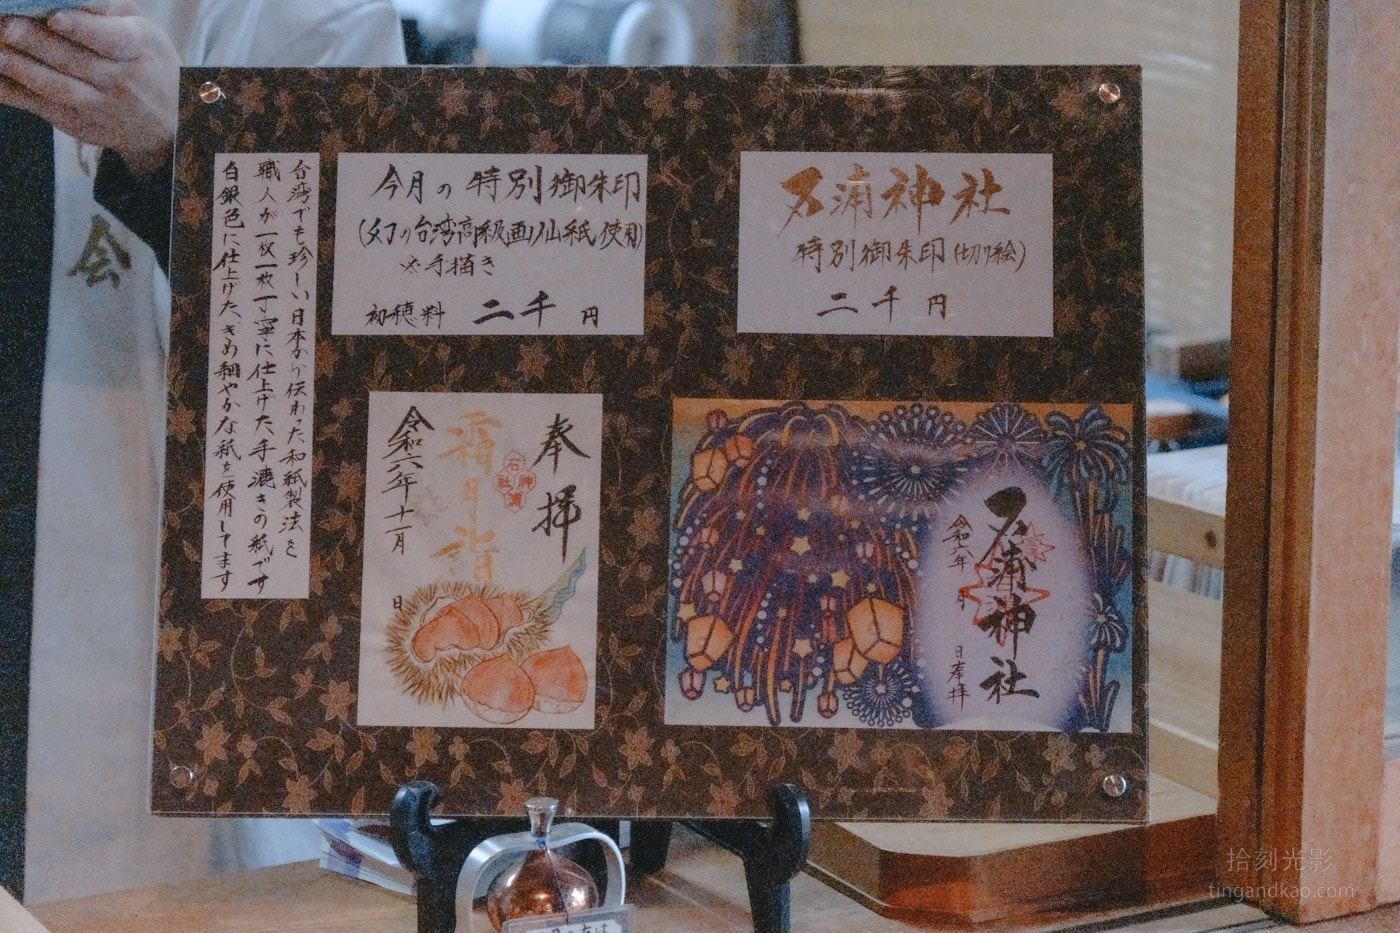 台湾でも珍しい日本から伝わった和紙製法を
職人が一枚一枚丁寧に仕上げた手漉きの紙です
白銀色に仕上げた、きめ細やかな紙を使用してます
今月の特別御朱印
(幻の台湾高級画仙紙使用)
※手描き
初穂料 二千円
石浦神社
特別御朱印(切り絵)
二千円
奉拝
石浦神社
霜月詣
令和六年十一月 日
石浦神社
令和六年 月 日奉拝
会
拾刻光影
tingandkao.com